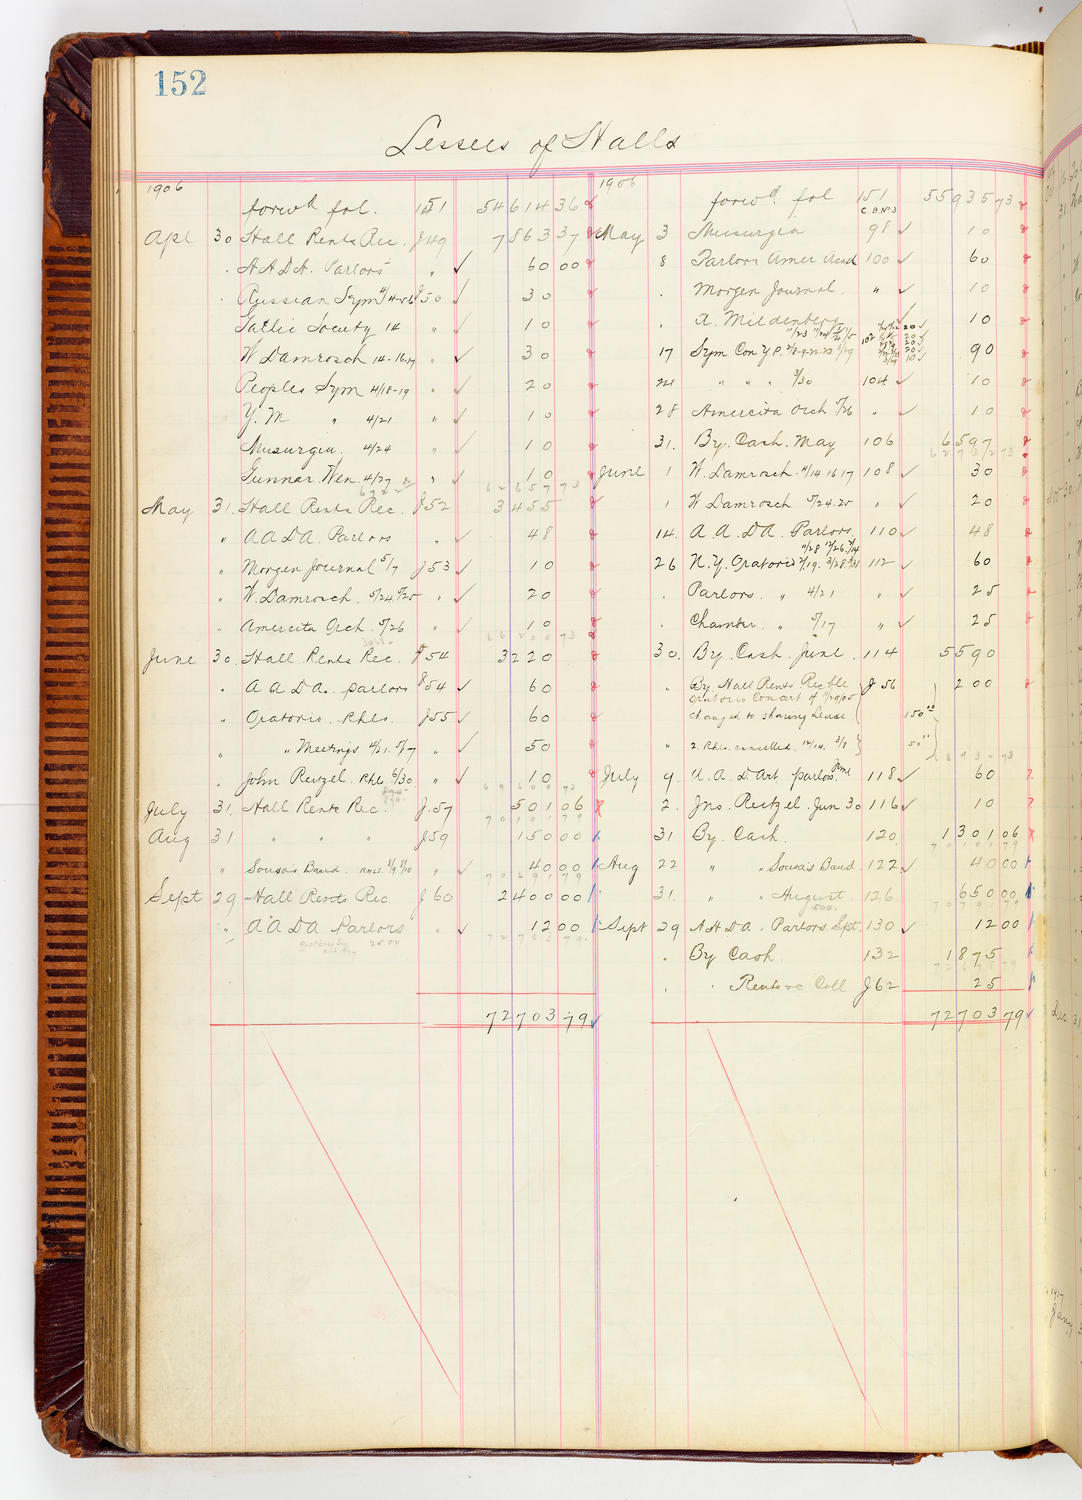 152
Lessees of Halls
1906
forw'd fol. 151 54614 36
Apl 30 Hall Rents Rec. J49 7863 37
" AADA. Parlors " 60 00
" Russian Sym 4/14-06 J50 30
Gaelic Society 14 " 10
W Damrosch 14-16-17 " 30
Peoples Sym 4/18-19 " 20
Y. M " 4/21 " 10
Musurgia. 4/24 " 10
Gunnar Wen. 4/27 " 10
62657 73
May 31. Hall Rents Rec. J52 3455
" AADA. Parlors " 48
" Morgen Journal 5/7 J53 10
" W. Damrosch. 5/24, 5/25 " 20
" Amercita Orch. 5/26 " 10
66200 73
June 30. Hall Rents Rec. J54 3220
" AADA. parlors J54 60
" Oratorio. Rhls. J55 60
" " Meetings 4/21. 5/7 " 50
" John Reizel. Rhl. 6/30 " 10
69600 73
July 31. Hall Rents Rec. J.57 501 06
70101 79
Aug 31 " " " J59 150 00
" Sousa's Band. " 40 00
70291 79
Sept 29 Hall Rents Rec. J60 2400 00
" AADA Parlors " 12 00
72703 79
25.00
72703 79
1906
forw'd fol 151 55935 73
C.B. No 3
May 3 Musurgia 98 10
8 Parlors Amer Acad 100 60
" Morgen Journal. " 10
" A. Mildenberg 10
17 Sym Con Y P. 102 90
24 " " " 3/30 104 10
28 Amercita Orch 5/26 " 10
31. By. Cash. May 106 6597
62732 73
June 1 W. Damrosch. 4/14 16 17 108 30
1 W Damrosch 5/24.25 " 20
14. A. A. DA. Parlors. 110 48
26 N.Y. Oratorio 112 60
" Parlors. " 4/21 " 25
" Chamber. " 5/17 " 25
30. By. Cash. June. 114 5590
" By. Hall Rents. Rec J56 200
Oratorio Concert of 11/20/05
changed to sharing Lease 150 00
" 2. Rhls. cancelled. 12/14. 3/8 50 00
July 9. A. A. D Art parlors. June 118 60
2. Jno. Reitzel. Jun 30 116 10
31 By. Cash. 120 1301 06
70101 79
Aug 22 " " Sousa's Band. 122 40 00
31. " " August 126 650 00
500.
Sept 29 AADA. Parlors. Sept. 130 12 00
" By Cash 132 1875
" " Rents Coll J62 25
72703 79